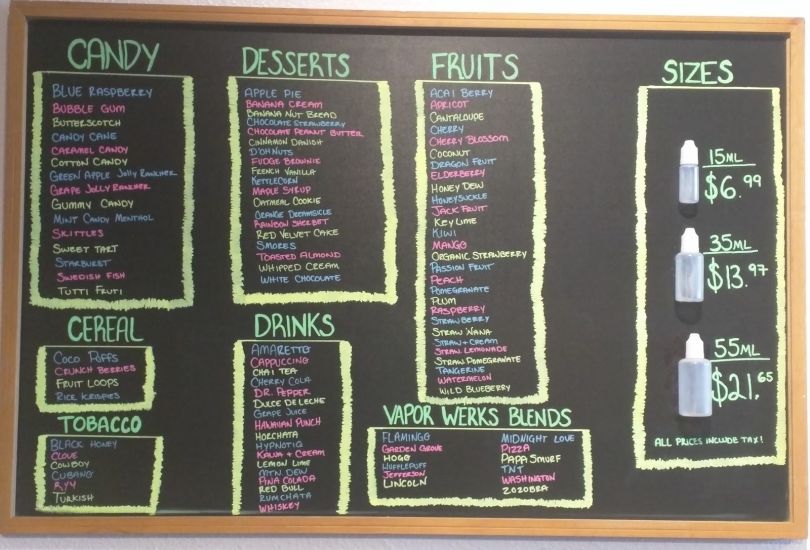 CANDY
BLUE RASPBERRY
BUBBLE GUM
BUTTERSCOTCH
CANDY CANE
CARAMEL CANDY
COTTON CANDY
GREEN APPLE JOLLY RANCHER
GRAPE JOLLY RANCHER
GUMMY CANDY
MINT CANDY MENTHOL
SKITTLES
SWEET TART
STARBURST
SWEDISH FISH
TUTTI FRUTI
CEREAL
COCO PUFFS
CRUNCH BERRIES
FRUIT LOOPS
RICE KRISPIES
TOBACCO
BLACK HONEY
CLOVE
COWBOY
CUBANO
RY4
TURKISH
DESSERTS
APPLE PIE
BANANA CREAM
BANANA NUT BREAD
CHOCOLATE STRAWBERRY
CHOCOLATE PEANUT BUTTER
CINNAMON DANISH
D'OH NUTS
FUDGE BROWNIE
FRENCH VANILLA
KETTLECORN
MAPLE SYRUP
OATMEAL COOKIE
ORANGE DREAMSICLE
RAINBOW SHERBET
RED VELVET CAKE
SMORES
TOASTED ALMOND
WHIPPED CREAM
WHITE CHOCOLATE
DRINKS
AMARETTO
CAPPUCCINO
CHAI TEA
CHERRY COLA
DR. PEPPER
DULCE DE LECHE
GRAPE JUICE
HAWAIIAN PUNCH
HORCHATA
HYPNOTIQ
KALUA + CREAM
LEMON LIME
MTN. DEW
PINA COLADA
RED BULL
RUMCHATA
WHISKEY
FRUITS
ACAI BERRY
APRICOT
CANTALOUPE
CHERRY
CHERRY BLOSSOM
COCONUT
DRAGON FRUIT
ELDERBERRY
HONEY DEW
HONEYSUCKLE
JACK FRUIT
KEY LIME
KIWI
MANGO
ORGANIC STRAWBERRY
PASSION FRUIT
PEACH
POMEGRANATE
PLUM
RASPBERRY
STRAWBERRY
STRAW'NANA
STRAW + CREAM
STRAW. LEMONADE
STRAW POMEGRANATE
TANGERINE
WATERMELON
WILD BLUEBERRY
VAPOR WERKS BLENDS
FLAMINGO
GARDEN GROVE
HOGG
HUFFLEPUFF
JEFFERSON
LINCOLN
MIDNIGHT LOVE
PIZZA
PAPA SMURF
TNT
WASHINGTON
ZOZOBRA
SIZES
15ML
$6.99
35ML
$13.97
55ML
$21.65
ALL PRICES INCLUDE TAX!